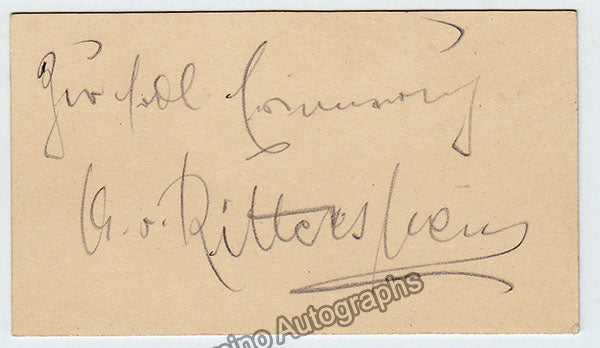 Zur frdl. Erinnerung
v. Rittersheim
mino Autographs